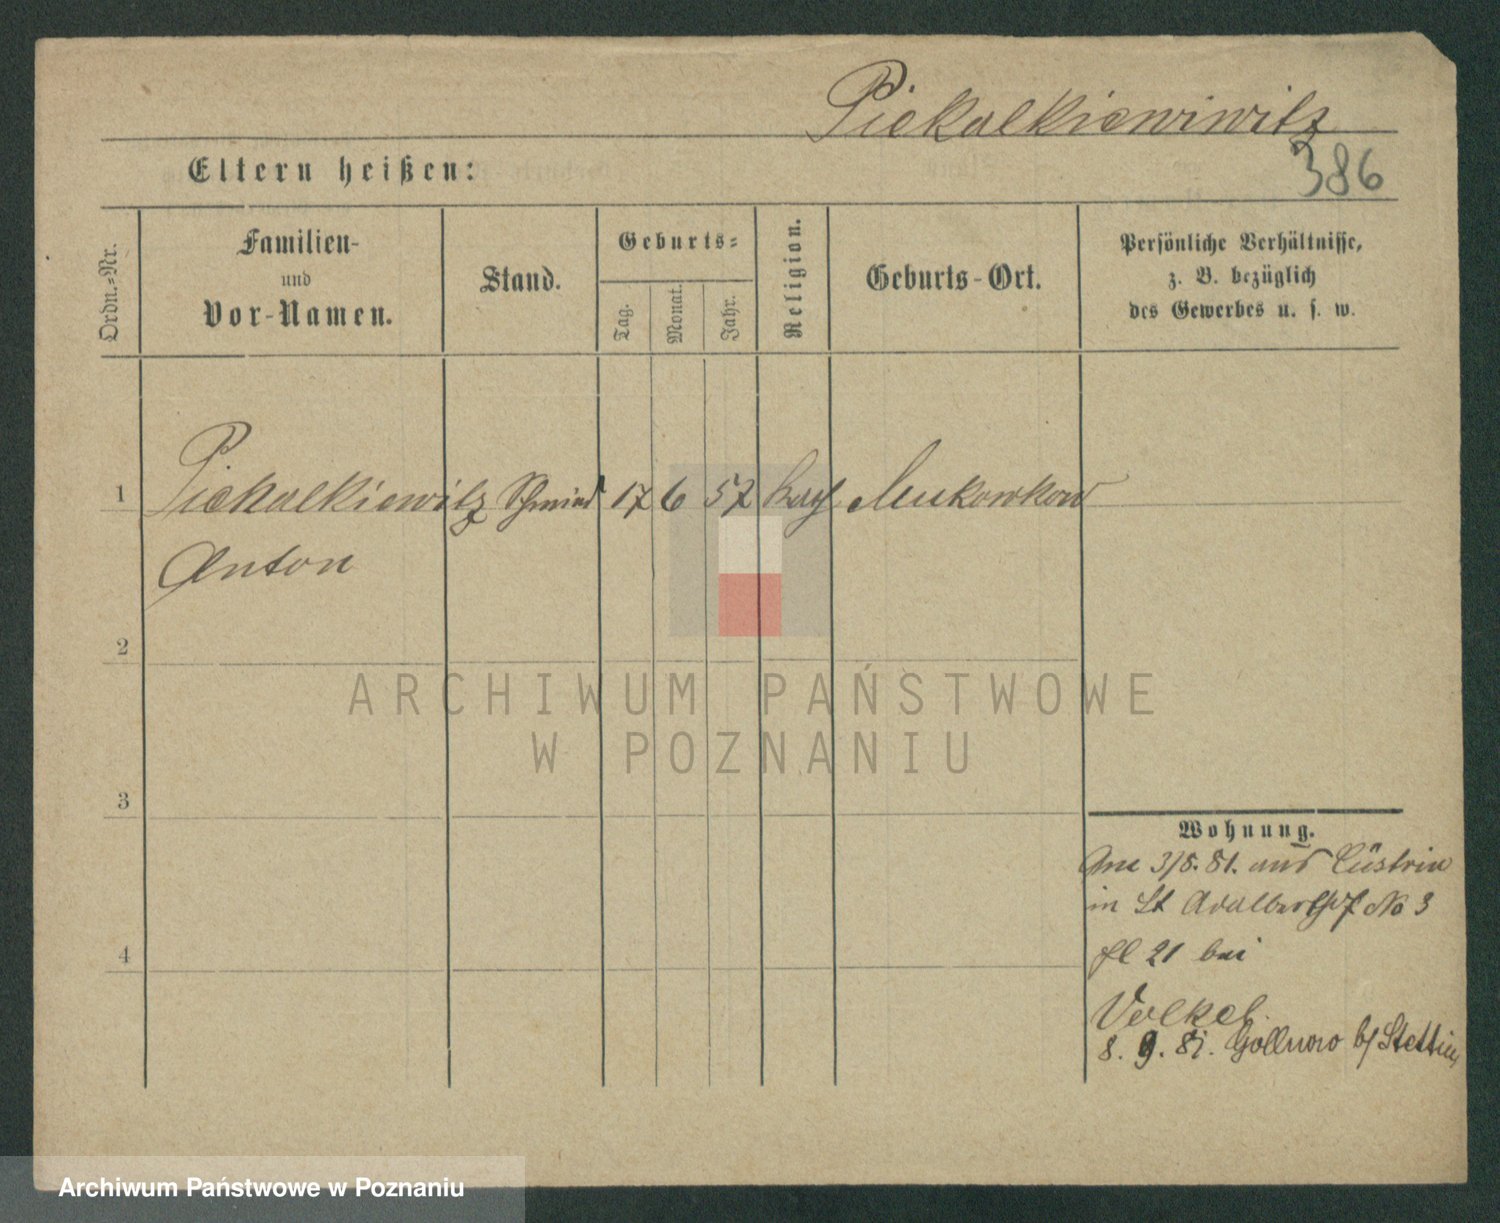 Piekalkiewiwitz
Eltern heißen:
386
Ordn.-Nr.
Familien-
und
Vor-Namen.
Stand.
Geburts-
Tag.
Monat.
Jahr.
Religion.
Geburts-Ort.
Persönliche Verhältnisse,
z. B. bezüglich
des Gewerbes u. s. w.
1 Piekalkiewitz Schmied 17 6 57 kath
Anton
2
3
4
Wohnung.
3/8. 81. aus Cüstrin
in St Adalbert No 3
21 bei
Volkel.
8. 9. 81. Gollnow b/ Stettin
ARCHIWUM PAŃSTWOWE
W POZNANIU
Archiwum Państwowe w Poznaniu